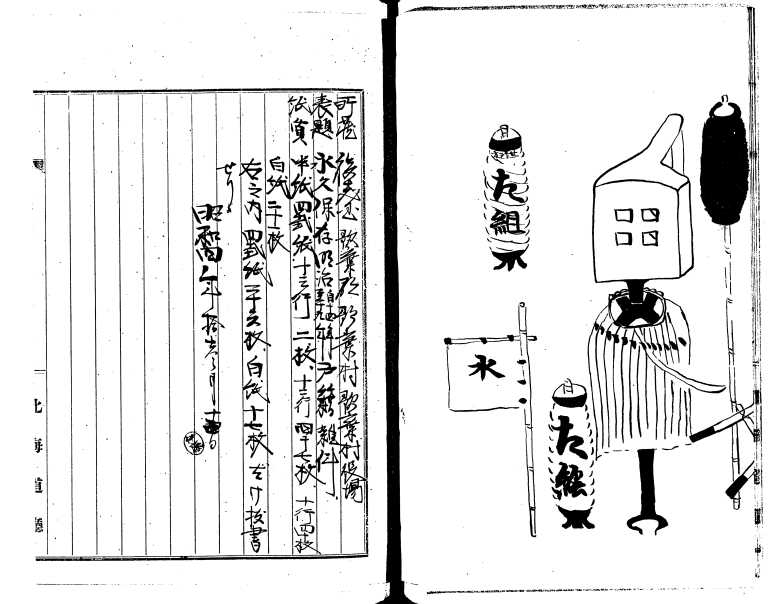 た組
水
た組
所蔵 後志国歌棄郡歌棄村歌棄村役場
表題 永久保存明治自四年至九年戸籍雑件
紙質 半紙罫紙十三行二枚、十二行四十七枚、十行四枚
白紙二十一枚
右之内罫紙三十六枚、白紙十七枚だけ抜書
せり。
昭和四年拾壱月十四日
北海道廳